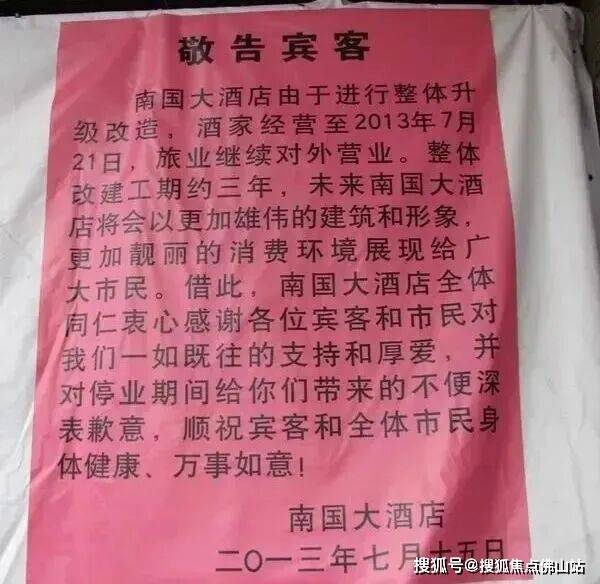 敬告宾客
南国大酒店由于进行整体升
级改造，酒家经营至2013年7月
21日，旅业继续对外营业。整体
改建工期约三年，未来南国大酒
店将会以更加雄伟的建筑和形象，
更加靓丽的消费环境展现给广
大市民。借此，南国大酒店全体
同仁衷心感谢各位宾客和市民对
我们一如既往的支持和厚爱，并
对停业期间给你们带来的不便深
表歉意，顺祝宾客和全体市民身
体健康、万事如意！
南国大酒店
二〇一三年七月十五日
搜狐号@搜狐焦点佛山站